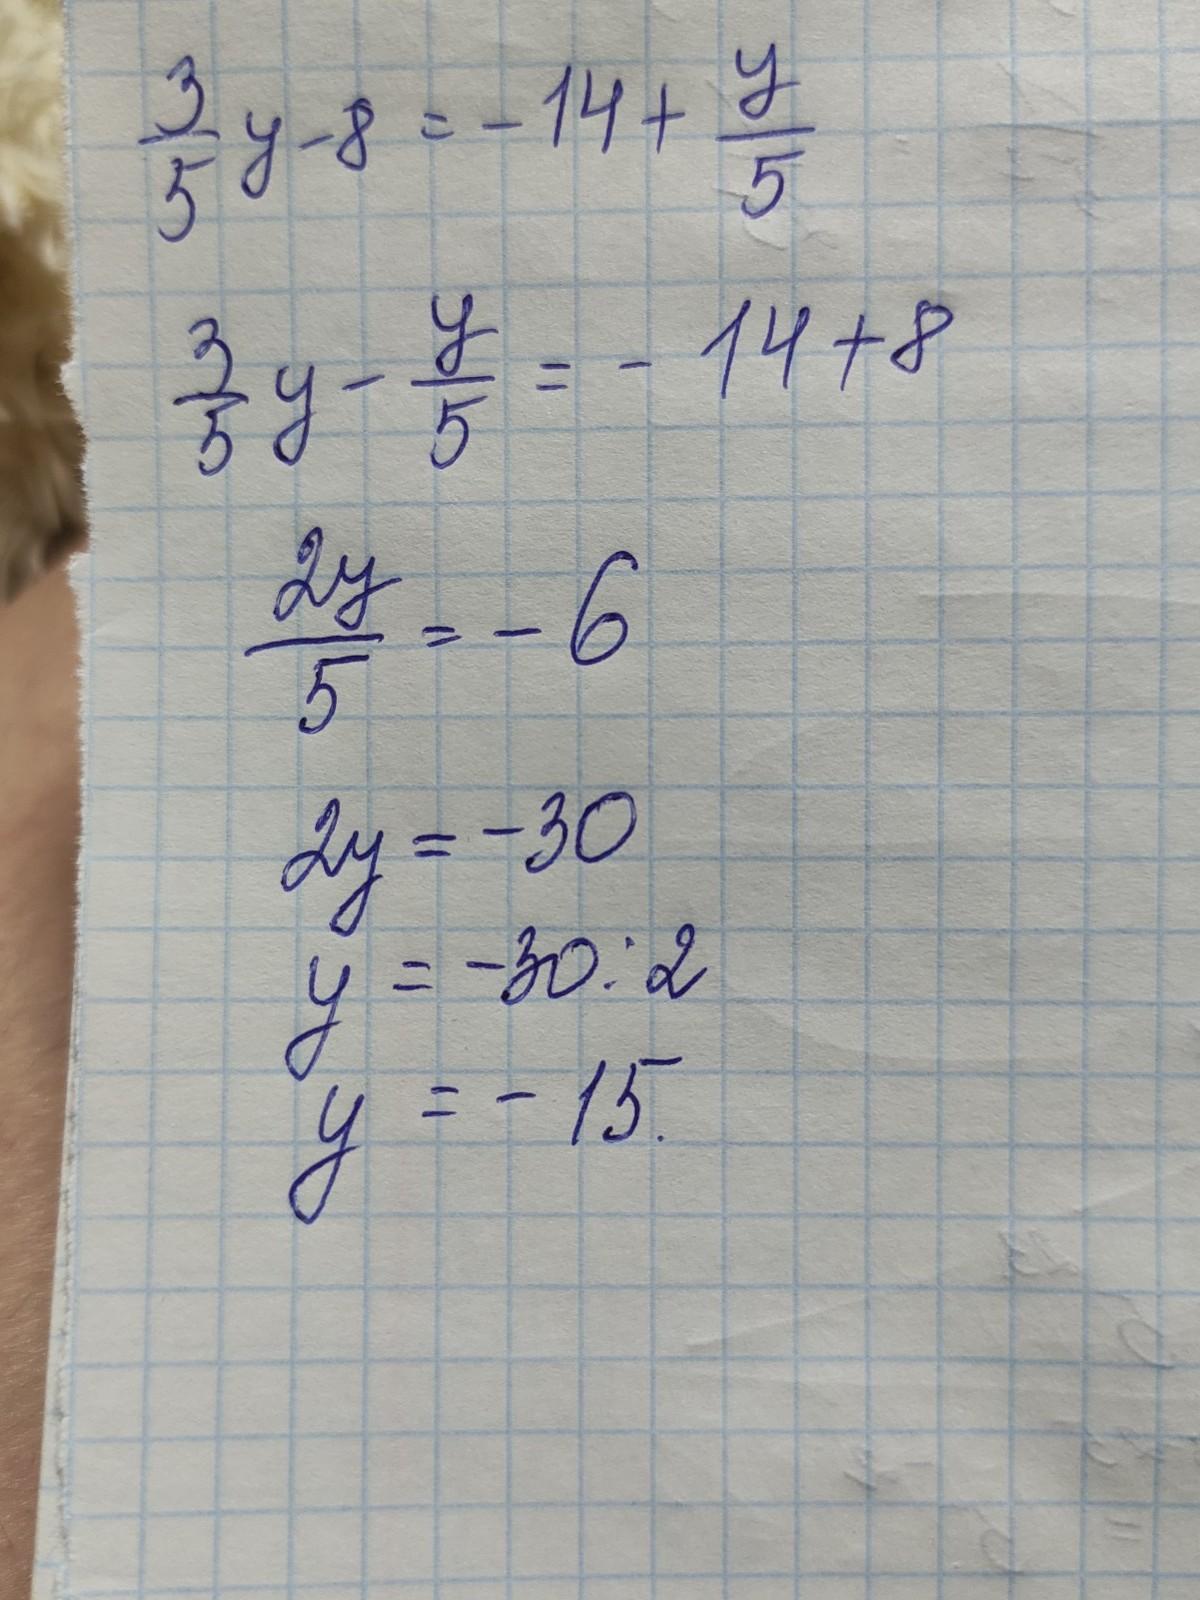 3/5 y - 8 = - 14 + y/5
3/5 y - y/5 = - 14 + 8
2y/5 = - 6
2y = - 30
y = - 30 : 2
y = - 15.